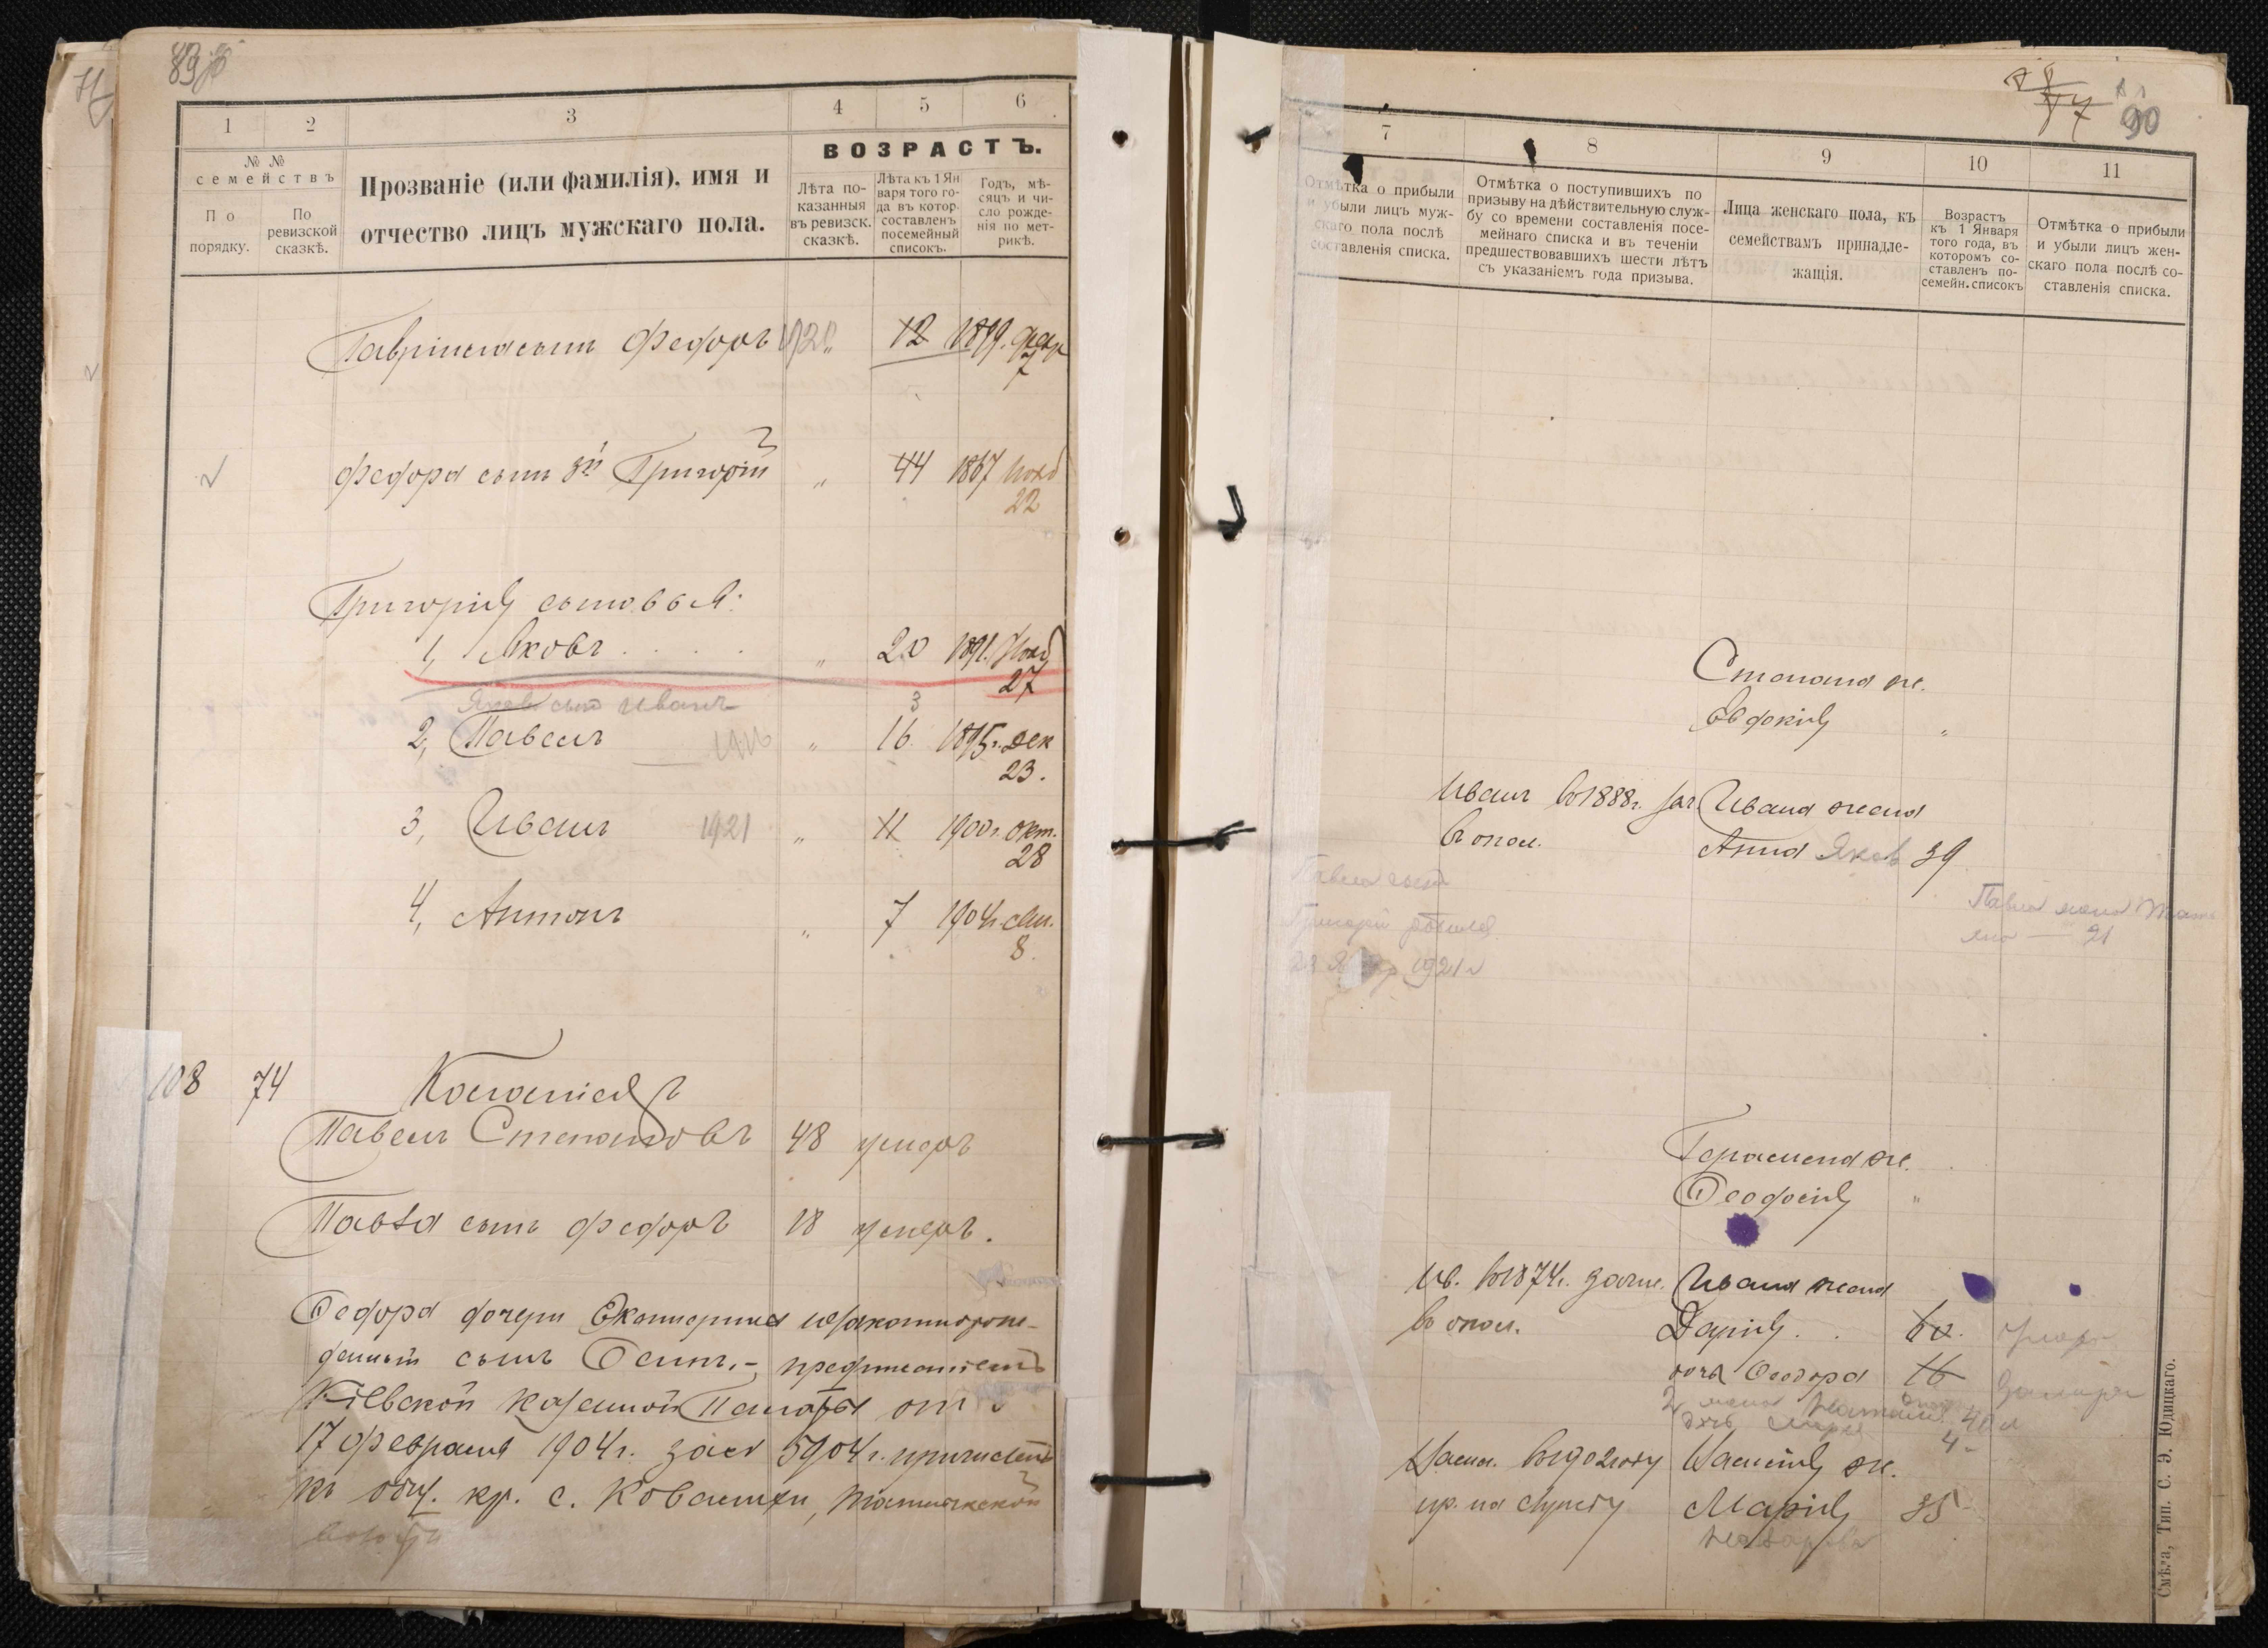 89
1 2 3 4 5 6
№ №
семействъ
По
порядку.
По
ревизской
сказкѣ.
Прозваніе (или фамилія), имя и
отчество лицъ мужскаго пола.
ВОЗРАСТЪ.
Лѣта по-
казанныя
въ ревизск.
сказкѣ.
Лѣта къ 1 Ян
варя того го-
да въ котор.
составленъ
посемейный
списокъ.
Годъ, мѣ-
сяцъ и чи-
сло рожде-
нія по мет-
рикѣ.
Гавріила сынъ Федоръ " 12 1899. февр
7
Федора сынъ 3й Григорій " 44 1867 Нояб
22
Григорія сыновья:
1, Яковъ . . . . " 20 1891. Нояб
27
Якова сынъ Иванъ 3
2, Павелъ " 16 1895г. дек
23.
3, Иванъ 1921 " 11 1900г. окт.
28
4, Антонъ " 7 1904г.
8.
108 74
Павелъ Степановъ 48 умеръ
Павла сынъ Федоръ 18 умеръ.
Федора дочери Екатерины незаконнорож-
денный сынъ предписаніемъ
Кіевской Казенной Палаты от
17 февраля 1904г. за 5904г. причисленъ
къ общ. кр. с.
90
7 8 9 10 11
Отмѣтка о прибыли
и убыли лицъ муж-
скаго пола послѣ
составленія списка.
Отмѣтка о поступившихъ по
призыву на дѣйствительную служ-
бу со времени составленія посе-
мейнаго списка и въ теченіи
предшествовавшихъ шести лѣтъ
съ указаніемъ года призыва.
Лица женскаго пола, къ
семействамъ принадле-
жащія.
Возрастъ
къ 1 Января
того года, въ
которомъ со-
ставленъ по-
семейн. списокъ
Отмѣтка о прибыли
и убыли лицъ жен-
скаго пола послѣ со-
ставленія списка.
Степана ж.
Евдокія "
Иванъ въ 1888г. зач. Ивана жена
въ опол. Анна Яков 39
Павла сынъ
Григорій
1921 г
Павла жена
21
Герасима ж.
Феодосія "
Ив. въ 1874г. зачис. Ивана жена
въ опол. Дарія . . 60.
дочь Феодора 16
40 л
4
въ 1902 году ж.
пр. на службу Марія 35
Смѣла, Тип. С. Э. Юдицкаго.